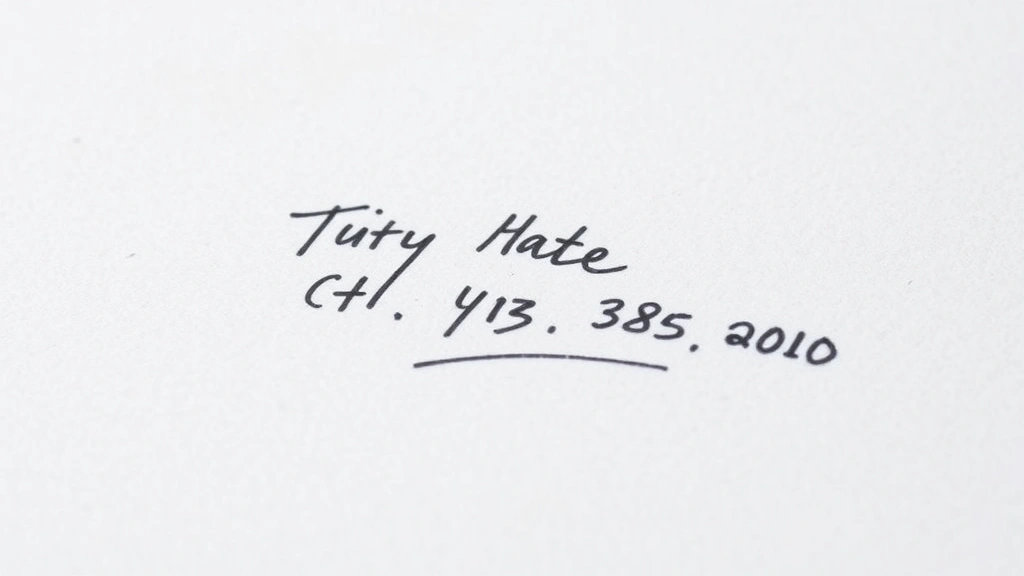 Tuty Hate
Ct. 413. 385. 2010